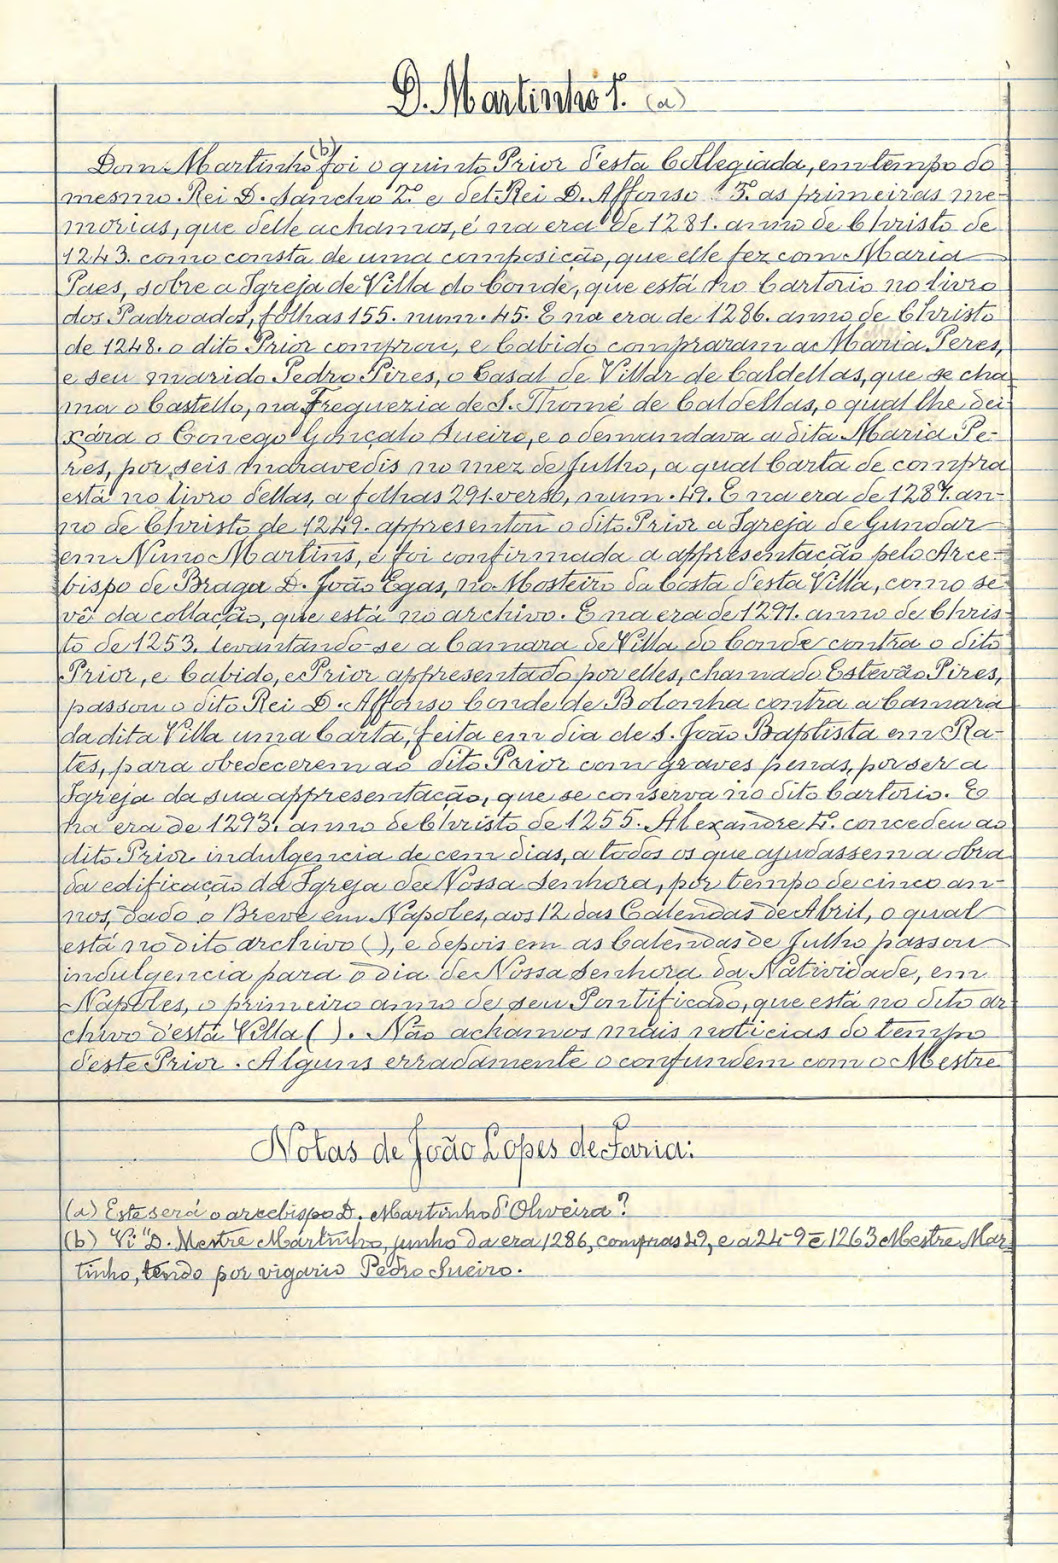 D. Martinho 1º. (a)
Dom Martinho (b) foi o quinto Prior d'esta Collegiada, em tempo do
mesmo Rei D. Sancho 2º. e del-Rei D. Affonso 3º. as primeiras me-
morias, que delle achamos, é na era de 1281. anno de Christo de
1243. como consta de uma composição, que elle fez com Maria
Paes, sobre a Igreja de Villa do Conde, que está no Cartorio no livro
dos Padroados, folhas 155. num. 45. E na era de 1286. anno de Christo
de 1248. o dito Prior comprou, e Cabido compraram a Maria Peres,
e seu marido Pedro Pires, o Casal de Villar de Caldellas, que se cha
ma o Castello, na Freguezia de S. Thomé de Caldellas, o qual lhe dei
xára o Conego Gonçalo Sueiro, e o demandava a dita Maria Pe-
res, por seis maravedis no mez de Julho, a qual Carta de compra
está no livro dellas, a folhas 291. verso, num. 49. E na era de 1287. an-
no de Christo de 1249. appresentou o dito Prior a Igreja de Gundar
em Nuno Martins, e foi confirmada a appresentação pelo Arce-
bispo de Braga D. João Egas, no Mosteiro da Costa d'esta Villa, como se
vê da collação, que está no archivo. E na era de 1291. anno de Chris-
to de 1253. levantando-se a Camara de Villa do Conde contra o dito
Prior, e Cabido, e Prior appresentado por elles, chamado Estevão Pires,
passou o dito Rei D. Affonso Conde de Bolonha contra a Camara
da dita Villa uma Carta, feita em dia de S. João Baptista em Ra-
tes, para obedecerem ao dito Prior com graves penas, por ser a
Igreja da sua appresentação, que se conserva no dito Cartorio. E
na era de 1293. anno de Christo de 1255. Alexandre 4º. concedeu ao
dito Prior indulgencia de cem dias, a todos os que ajudassem a obra
da edificação da Igreja de Nossa Senhora, por tempo de cinco an-
nos, dado o Breve em Napoles, aos 12 das Calendas de Abril, o qual
está no dito archivo ( ), e depois em as Calendas de Julho passou
indulgencia para o dia de Nossa Senhora da Natividade, em
Napoles, o primeiro anno de seu Pontificado, que está no dito ar
chivo d'esta Villa ( ). Não achamos mais noticias do tempo
d'este Prior. Alguns erradamente o confundem com o Mestre
Notas de João Lopes de Faria:
(a) Este será o arcebispo D. Martinho d'Oliveira?
(b) Vi "D. Mestre Martinho, junho da era 1286, compras 49, e a 24-9º-1263 Mestre Mar-
tinho, tendo por vigario Pedro Sueiro.